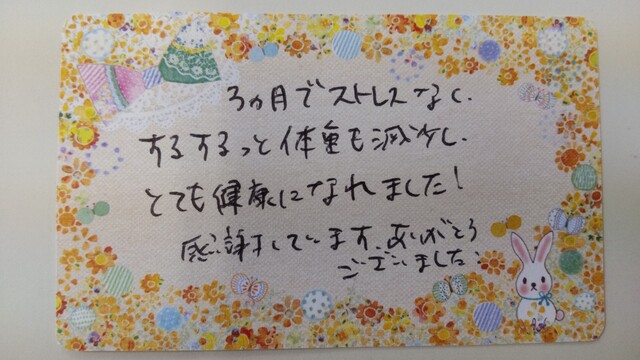 3ヵ月でストレスなく、
するするっと体重も減少し、
とても健康になれました!
感謝しています、ありがとう
ございました。